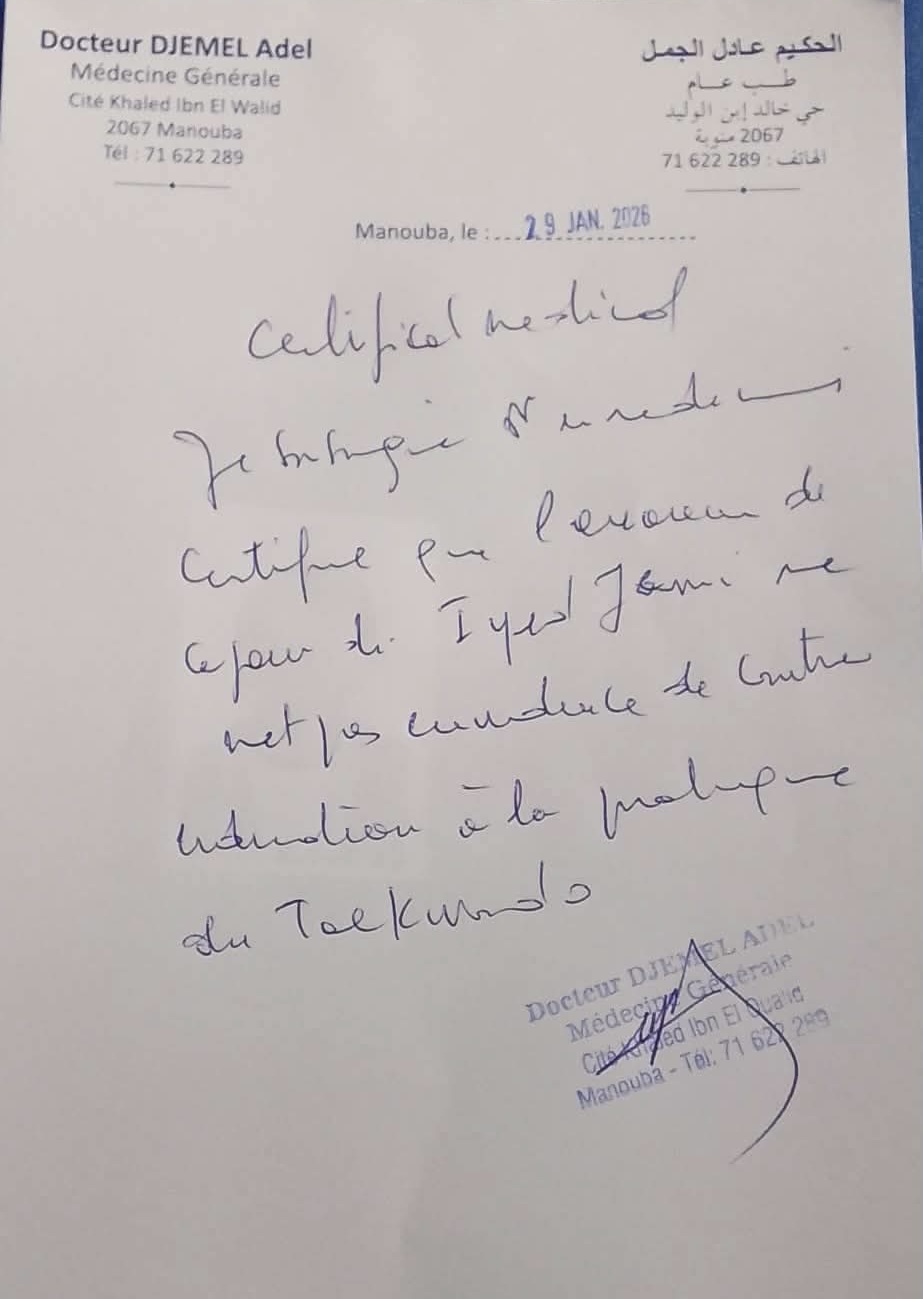 Docteur DJEMEL Adel
Médecine Générale
Cité Khaled Ibn El Walid
2067 Manouba
Tél : 71 622 289
الحكيم عادل الجمل
طب عام
حي خالد إبن الوليد
2067 منوبة
الهاتف : 289 622 71
Manouba, le : 29 JAN. 2026
Certificat medical
Je
Certifie que l'examen de
ce jour de Iyed Jami ne
met pas en evidence de contre
indication à la pratique
du Taekwondo
Docteur DJEMEL ADEL
Médecine Générale
Cité Khaled Ibn El Oualid
Manouba - Tél: 71 622 289